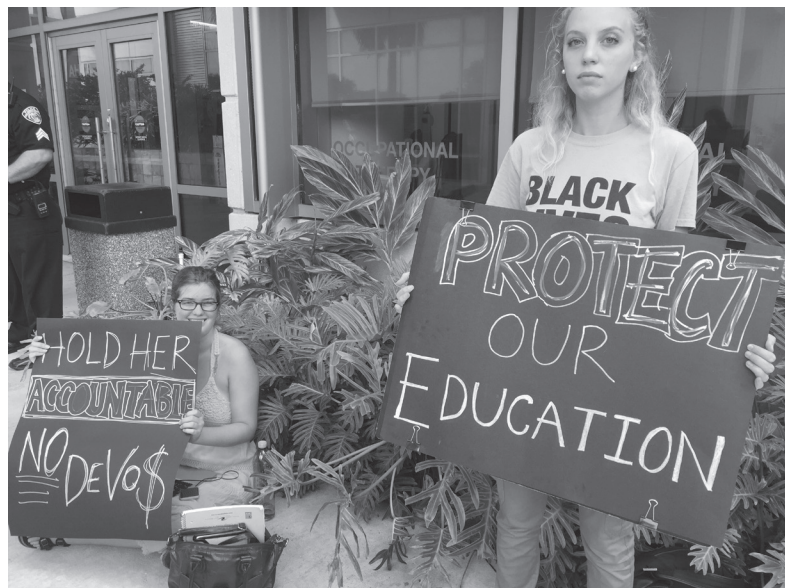 OCCUPATIONAL
BLACK
HOLD HER
ACCOUNTABLE
NO DEVO$
PROTECT
OUR
EDUCATION